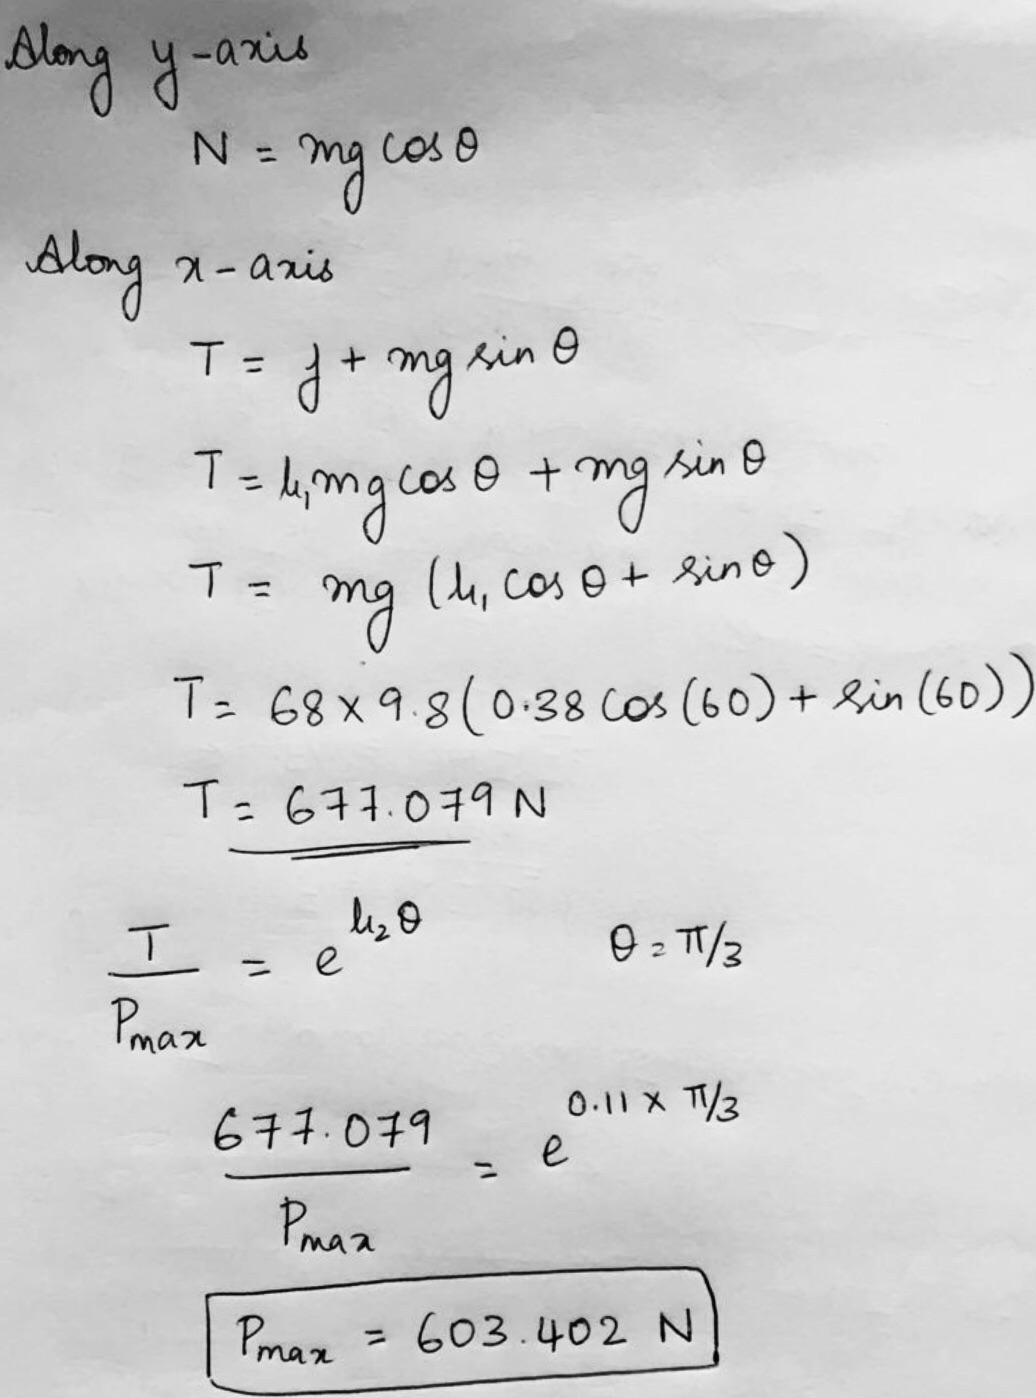 Along y-axis
N = mg cos θ
Along x-axis
T = f + mg sin θ
T = μ₁mg cos θ + mg sin θ
T = mg (μ₁ cos θ + sin θ)
T = 68 x 9.8 (0.38 cos (60) + sin (60))
T = 677.079 N
T/Pmax = e^μ₂θ θ = π/3
677.079/Pmax = e^0.11 x π/3
Pmax = 603.402 N